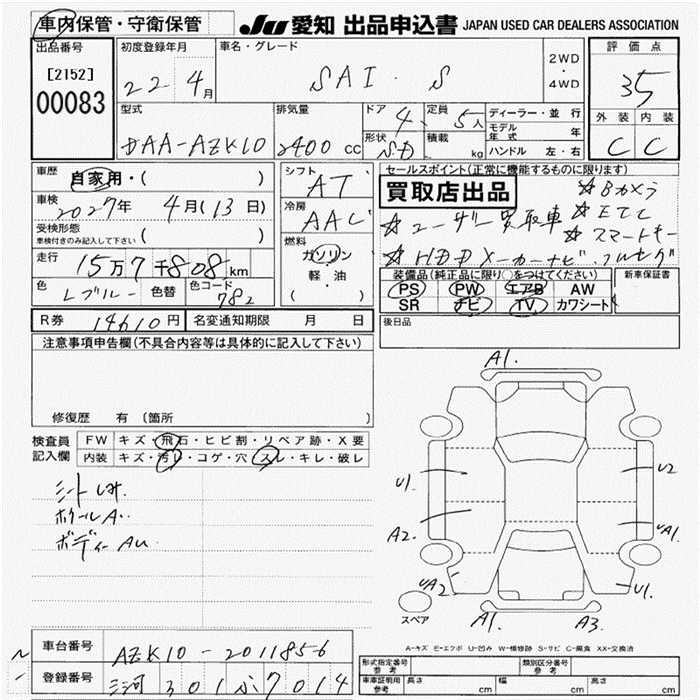 車内保管・守衛保管
JU 愛知 出品申込書 JAPAN USED CAR DEALERS ASSOCIATION
出品番号 初度登録年月 車名・グレード 評価点
[2152] 22 4月 SAI. S 2WD・4WD 35
00083
型式 排気量 ドア 4 定員 5人 ディーラー・並行 外装 内装
DAA-AZK10 2400 cc 形状 SD 積載 kg モデル年式 年 C C
ハンドル 左・右
車歴 自家用・( ) シフト AT セールスポイント(正常に機能するものに限ります)
買取店出品 ☆Bカメラ
車検 2027年 4月(13日) 冷房 AAC ☆ユーザー買取車 ☆ETC
受検形態 車検付きのみ記入して下さい ( ) ☆スマートキー
燃料 ガソリン 軽・油 ( ) ☆HDDメーカーナビ.フルセグ
走行 15万7千808km 装備品(純正品に限り○をつけてください) 新車保証書
色 Lブルー 色替 色コード 782 PS PW エアB AW
SR ナビ TV カワシート
R券 14610円 名変通知期限 月 日 後日品
注意事項申告欄(不具合内容等は具体的に記入して下さい)
修復歴 有 (箇所 )
検査員記入欄 FW キズ・飛石・ヒビ割・リペア跡・X要
内装 キズ・汚レ・コゲ・穴・スレ・キレ・破レ
シートしみ.
ホイールA.
ボディーAu
A1.
U1. U2
A2. UA1.
UA2 U1.
スペア A1 A1. A3.
A-キズ E-エクボ U-凹み W-補修跡 S-サビ C-腐食 XX-交換済
車台番号 AZK10-2011856
登録番号 三河 301 ふ 7014
形式指定番号 参考 類別区分番号 参考
車庫証明用 参考 長さ cm 幅 cm 高さ cm